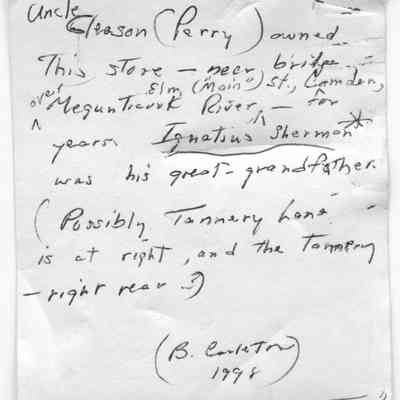 Uncle
Gleason (Perry) owned
This store — near bridge
Elm, (Main) St., Camden,
over Megunticook River, — for
years. Ignatius Sherman*
was his great-grandfather.
(Possibly Tannery Lane
is at right, and the Tannery
— right rear.)
(B. Carleton)
1998